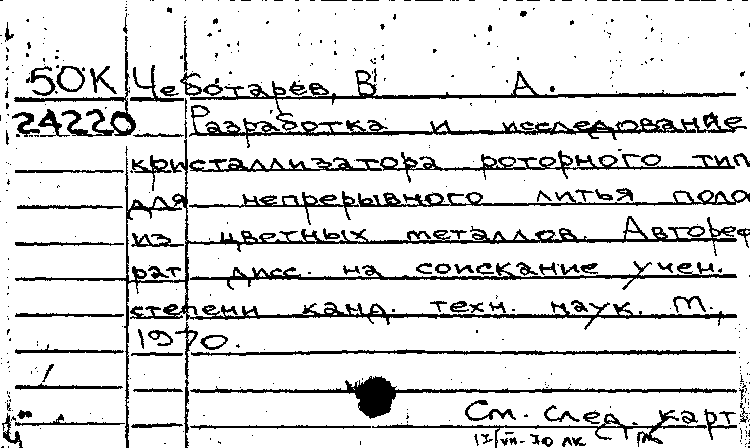 50К Чеботарев, В А.
24220 Разработка и исследование
кристаллизатора роторного тип
для непрерывного литья поло
из цветных металлов. Автореф
рат дисс. на соискание учен.
степени канд. техн. наук. М.,
1970.
См. след. карт